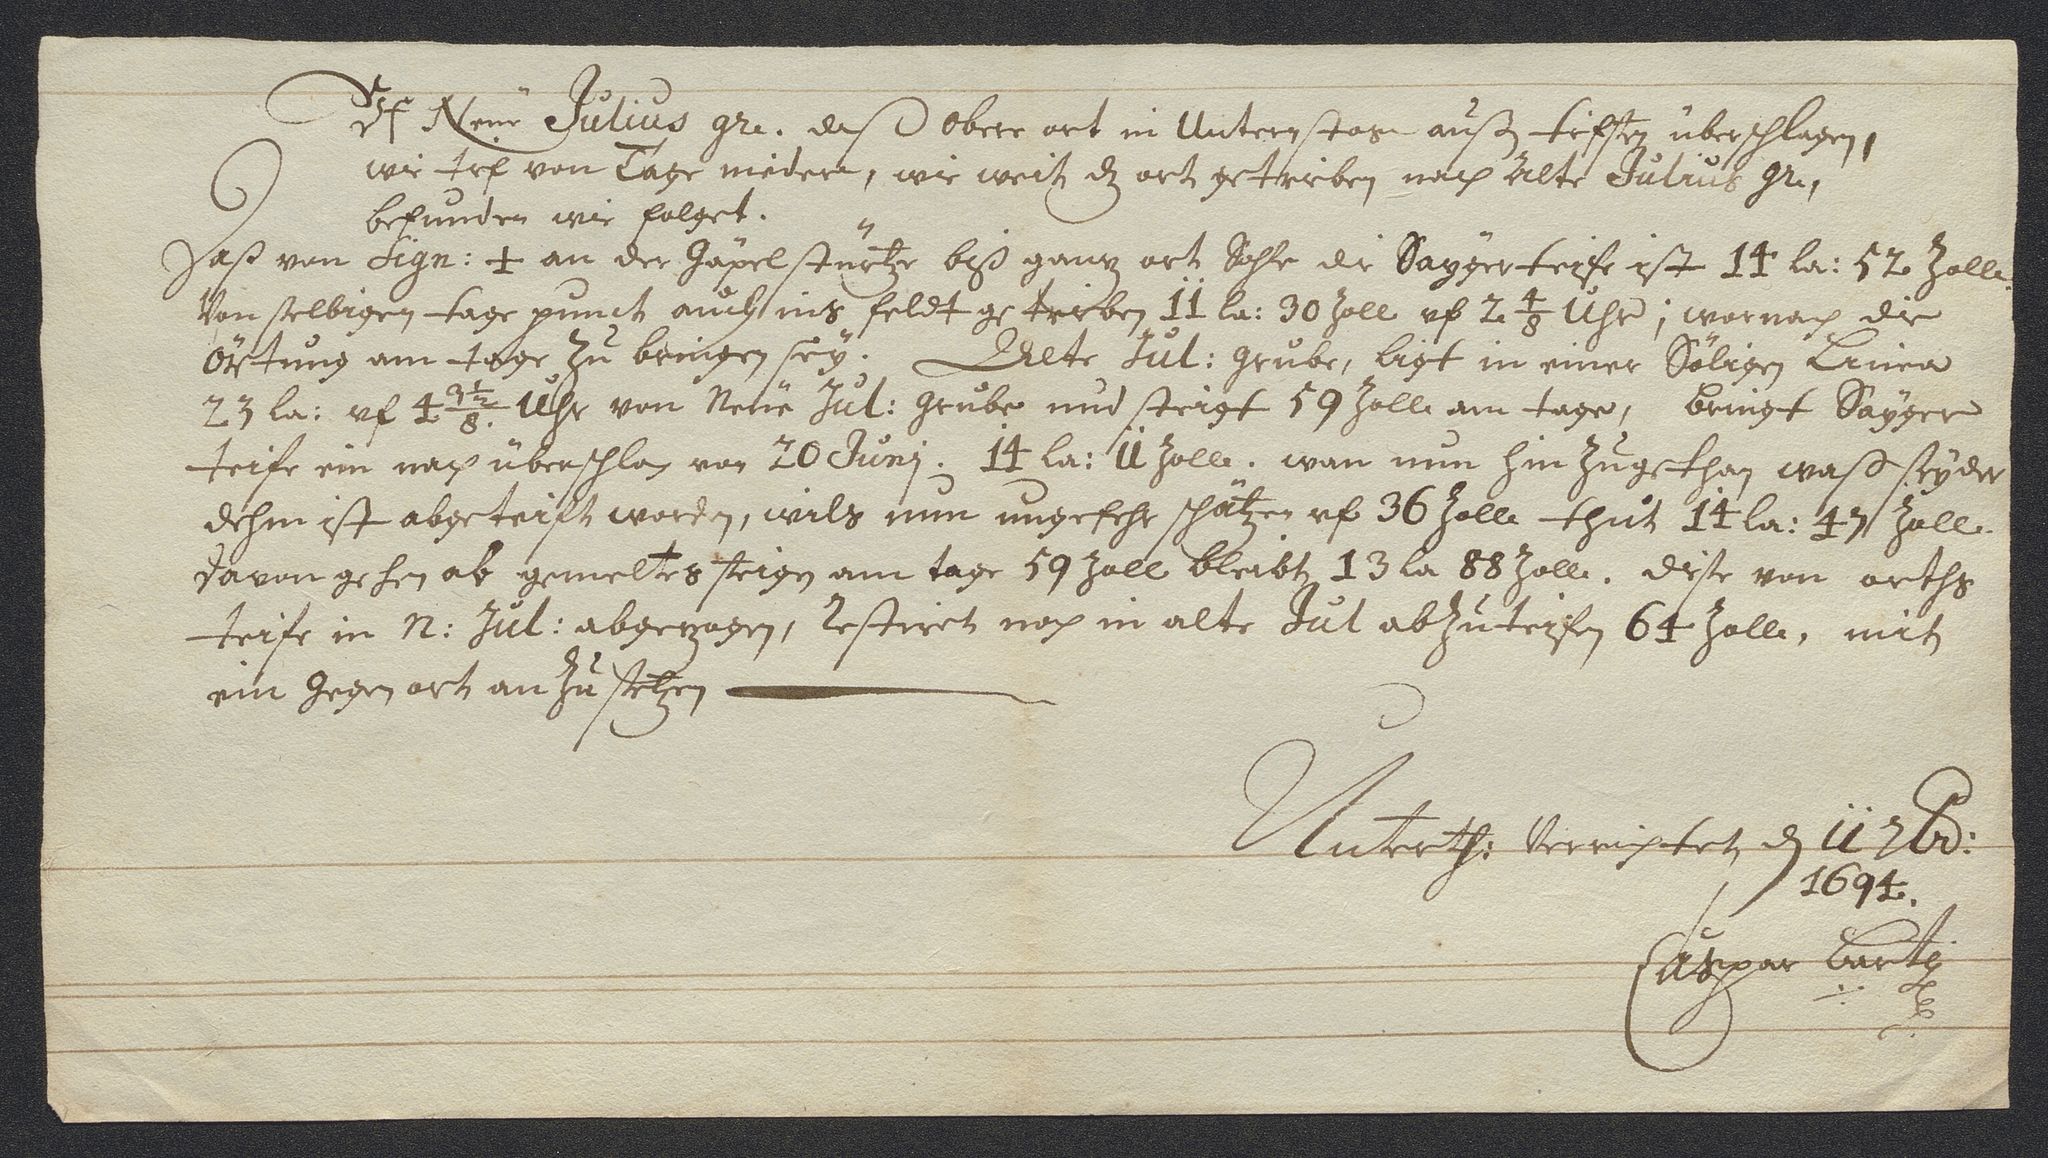 Vf Neüe Julius gr. daß obere ort in Unternstose außn tifsten überschlagen,
wie teif von Tage nieder, wie weit dz ort getrieben nach Alte Julius gr.,
befunden wie folget.
Daß von Sign: + an der Gäpel stürtze biß ganz ort Sohle die Saygerteife ist 14 la: 52 Zolle.
Von selbigen tage punct auch ins feldt getrieben 11 la: 30 Zoll vf 2 4/8 Uhr; wornach die
Örtung am tage zu bringen sey. Alte Jul: grube, ligt in einer Söligen Linea
23 la: vf 4 3½/8. Uhr von Neüe Jul: grube und steigt 59 Zolle am tage, bringt Sayger
teife ein nach überschlag von 20 Junj. 14 la: 11 Zolle. wan nun hin zugethan waß seyder
dehm ist abgeteift worden, wils nun ungefehr schätzen vf 36 Zolle thut 14 la: 47 Zolle.
davon gehen ab gemeltes steigen am tage 59 Zoll bleibt 13 la 88 Zolle. diese von orths
teife in N: Jul: abgezogen, Restiret noch in alte Jul abzuteifen 64 Zolle, mit
ein gegen ort an zu setzen
Unterth: Verrichtet d 11 7br:
1694.
Caspar